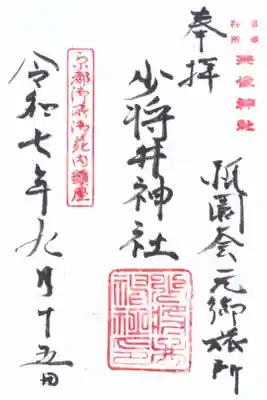 京都御所
宗像神社
奉拝
祇園会元御旅所
少将井神社
京都御所御苑内鎮座
令和七年九月十五日